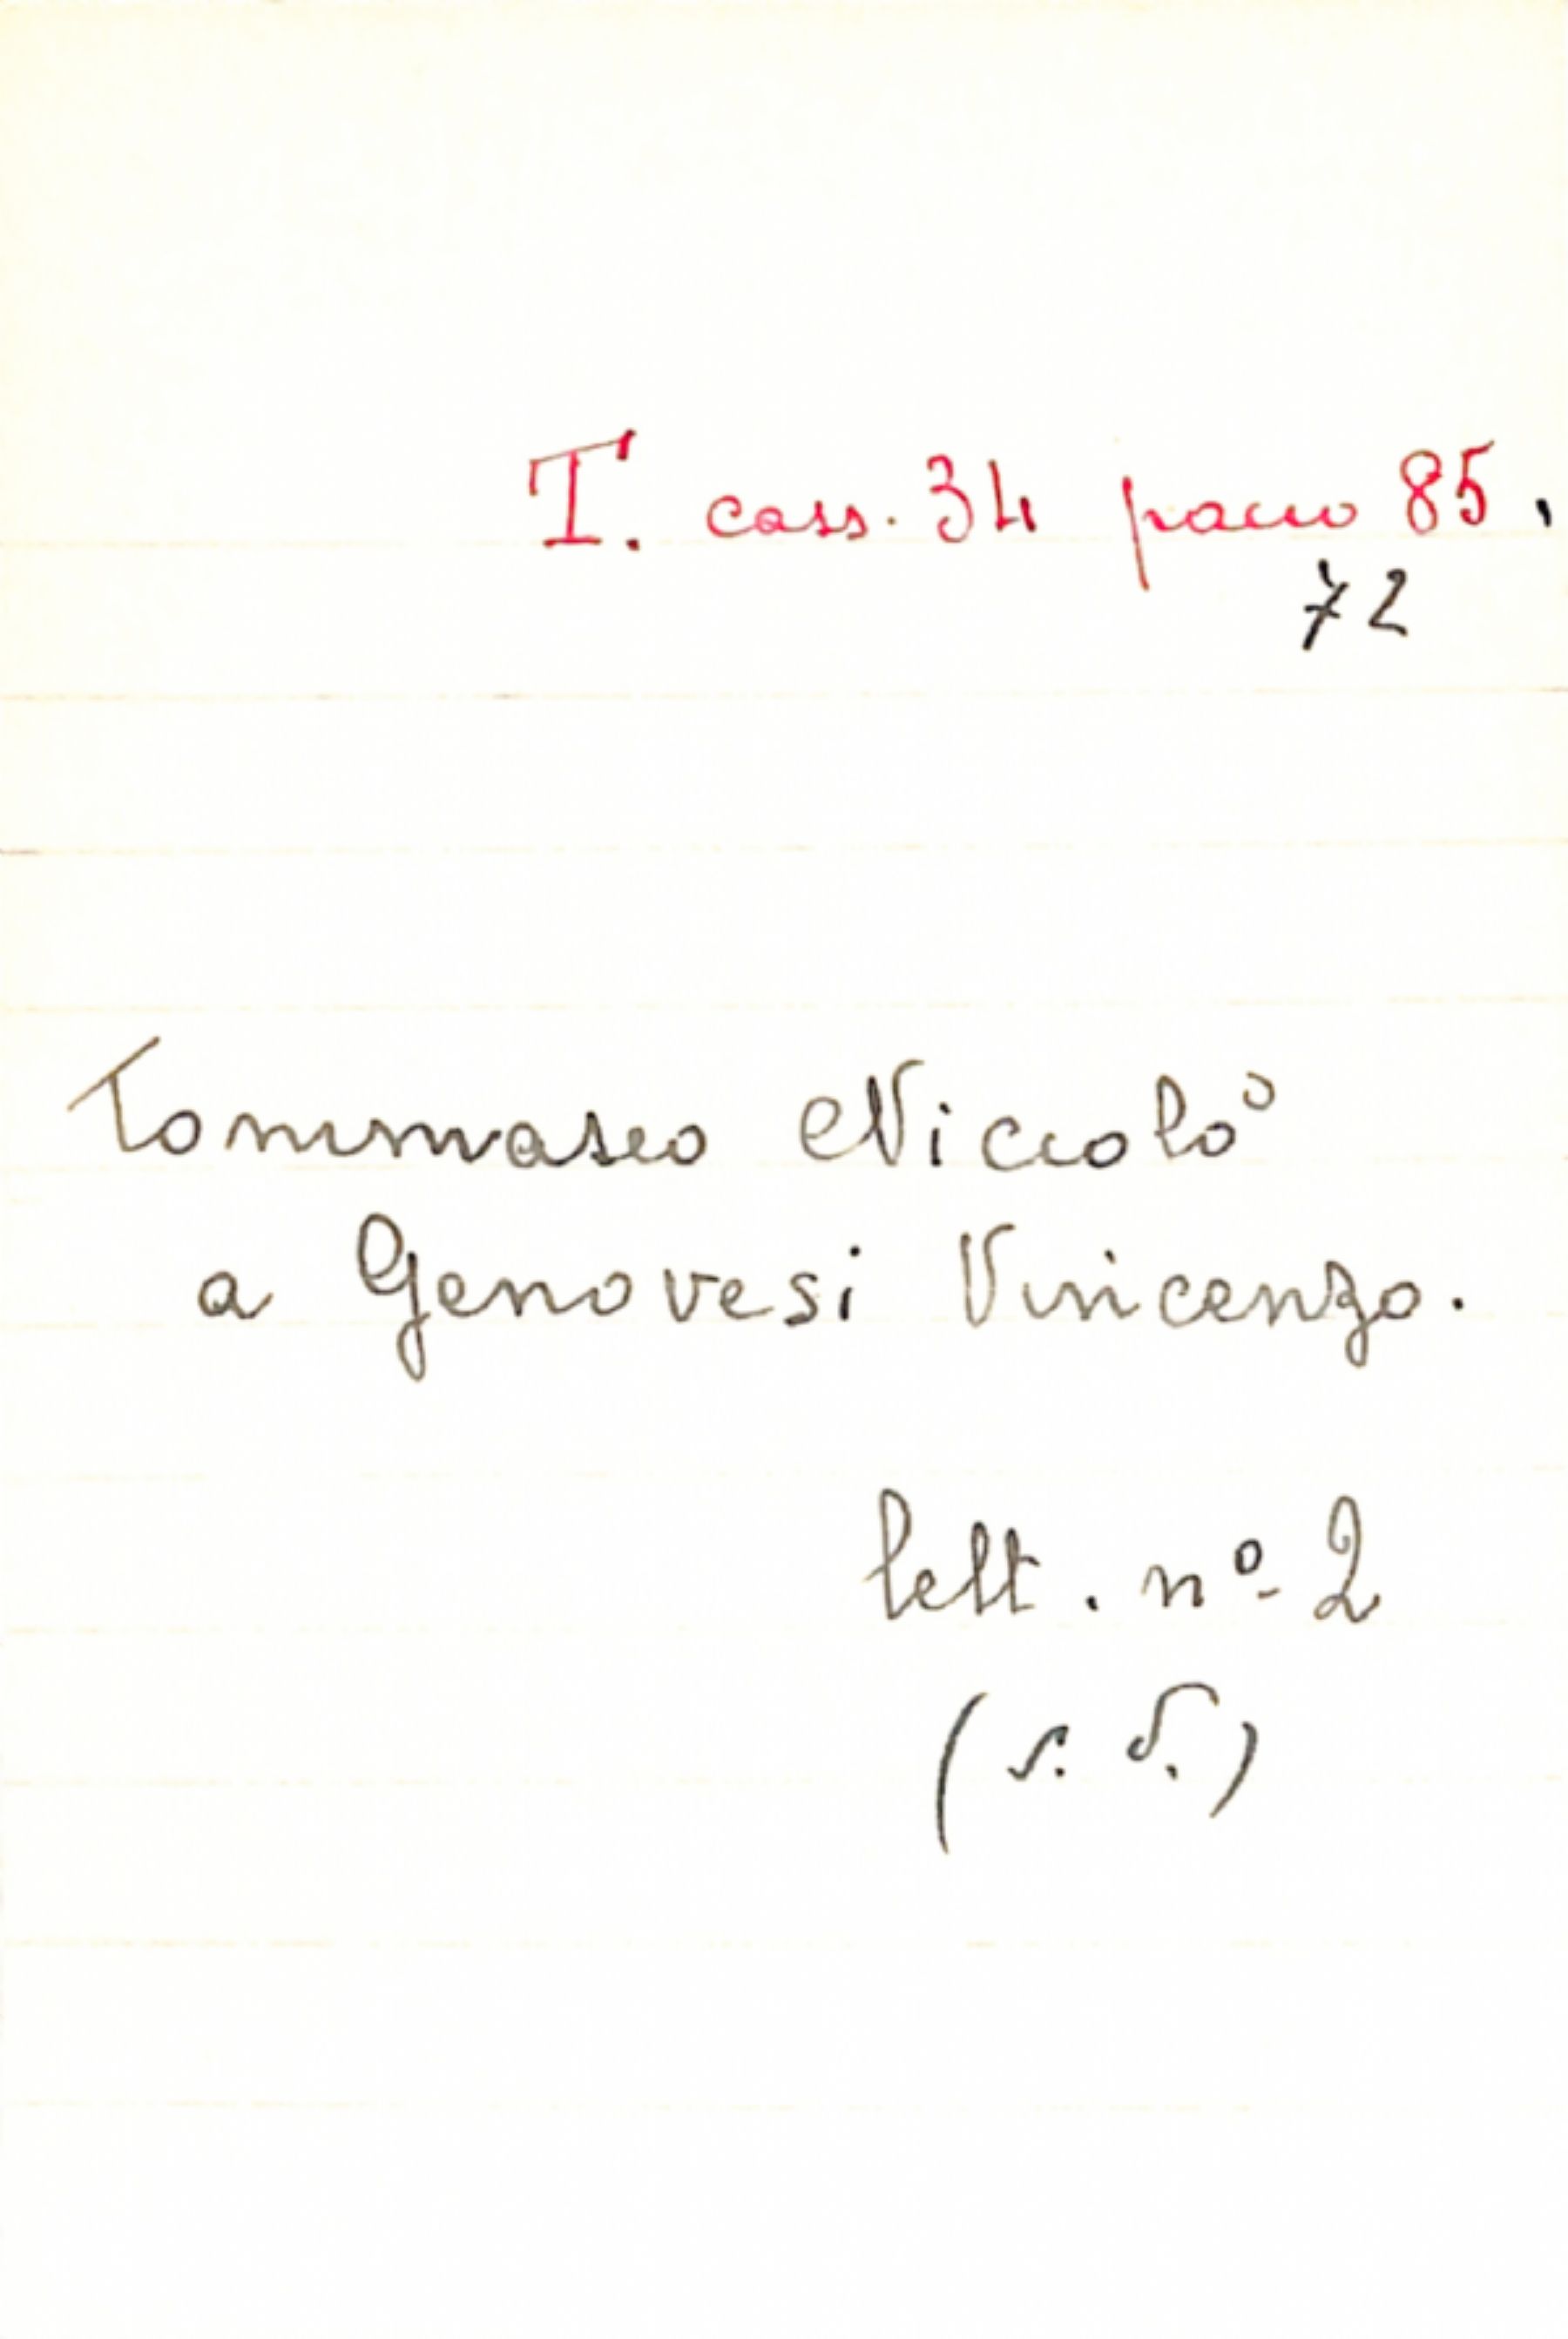 T. cass. 34 pacco 85,
72
Tommaseo Niccolò
a Genovesi Vincenzo.
lett. nº 2
(s. d.)